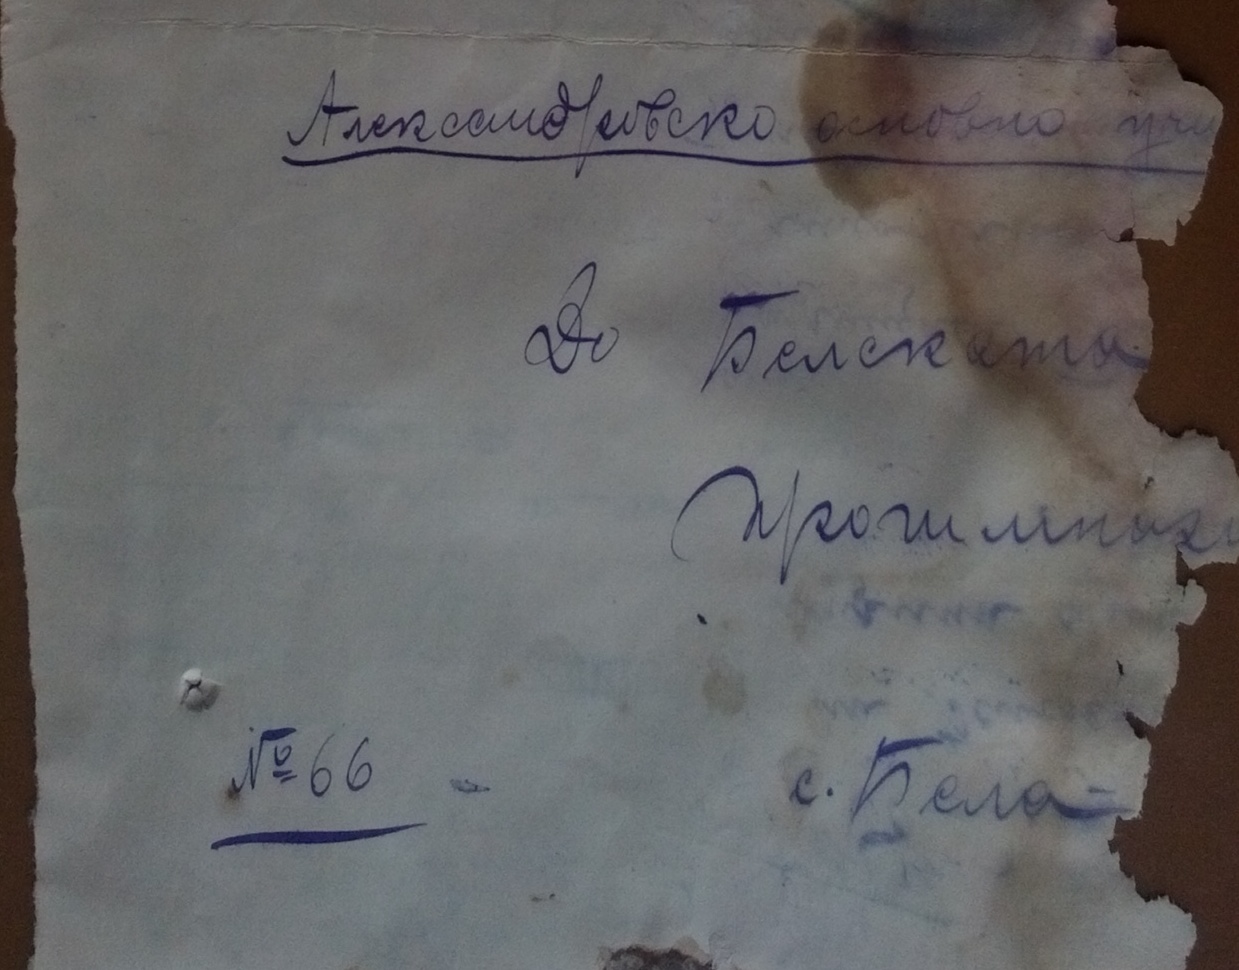 Александровско основно учи
До Белската
Прогимнази
№ 66 - с. Бела-